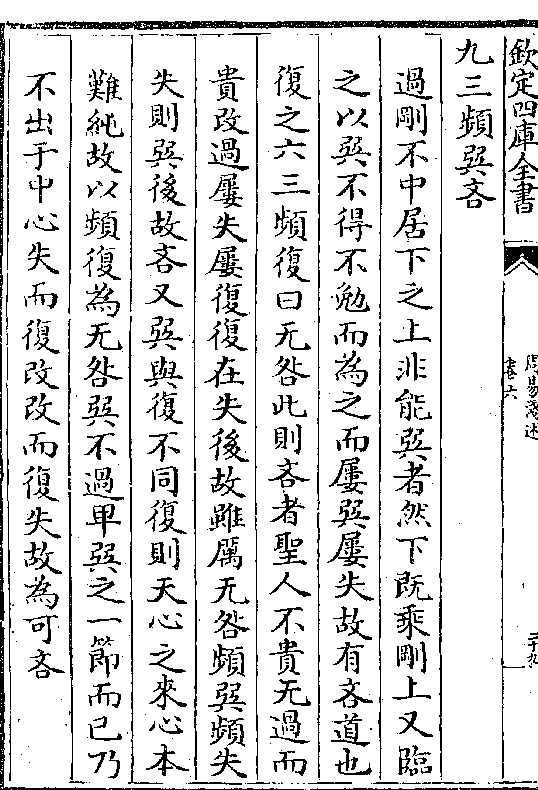 欽定四庫全書
周易
卷六
九三頻巽吝
過剛不中居下之上非能巽者然下既乘剛上又臨
之以巽不得不勉而為之而屢巽屢失故有吝道也
復之六三頻復曰无咎此則吝者聖人不貴无過而
貴改過屢失屢復復在失後故雖厲无咎頻巽頻失
失則巽後故吝又巽與復不同復則天心之來心本
難純故以頻復為无咎巽不過卑巽之一節而已乃
不出于中心失而復改改而復失故為可吝